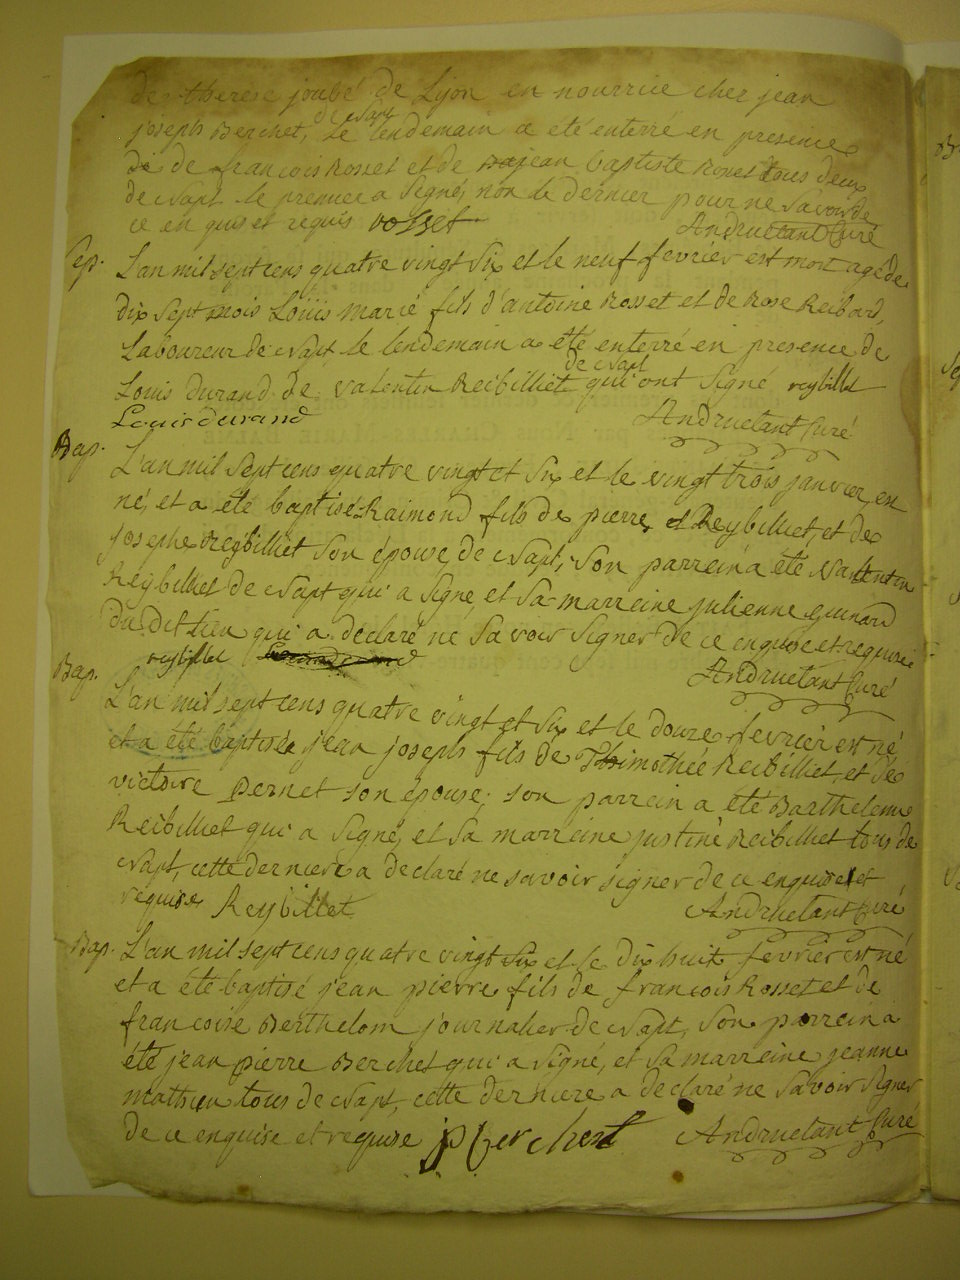 de therese joubé de Lyon en nourrice cher jean
joseph Berchet, de vapt Le lendemain a eté enterré en presence
de de francois Rosset et de jean baptiste Rosset tous deux
de vapt le premier a signé, non le dernier pour ne savoir de
ce enquis et requis rosset Andruetant Curé
Sep. L'an mil sept cens quatre vingt six et le neuf fevrier est mort agé de
dix sept mois Louis marie fils d'antoine Rosset et de Rose Reibard,
Laboureur de vapt le lendemain a eté enterré en presence de
de vapt
Louis durand de valentin Reibilliet qui ont signé reybillet
Louis durand Andruetant Curé
Bap. L'an mil sept cens quatre vingt et six et le vingt trois janvier, en
né, et a eté baptisé Raimond fils de pierre et Reybilliet, et de
josephe Reybilliet son épouse, de vapt, son parrein a été valentin
Reybilliet de vapt qui a signé, et sa marreine julienne guinard
du dit lieu qui a declaré ne savoir signer de ce enquise et requise
reybillet Andruetant Curé
Bap. L'an mil sept cens quatre vingt et six et le douze fevrier est né
et a été baptisée jean joseph fils de Thimothée Reibilliet, et de
victoire Pernet son épouse; son parrein a été Barthelemi
Reibilliet qui a signé, et sa marreine justine Reibilliet tous de
vapt, cette derniere a declaré ne savoir signer de ce enquise et
requise Reybillet Andruetant Curé
Bap. L'an mil sept cens quatre vingt six et le dix huit fevrier est né
et a été baptisé jean pierre fils de francois Rosset et de
francoise Berthelom journalier de vapt, son parrein a
été jean pierre Berchet qui a signé, et sa marreine jeanne
mathieu tous de vapt, cette derniere a declaré ne savoir signer
de ce enquise et requise jp berchest Andruetant Curé